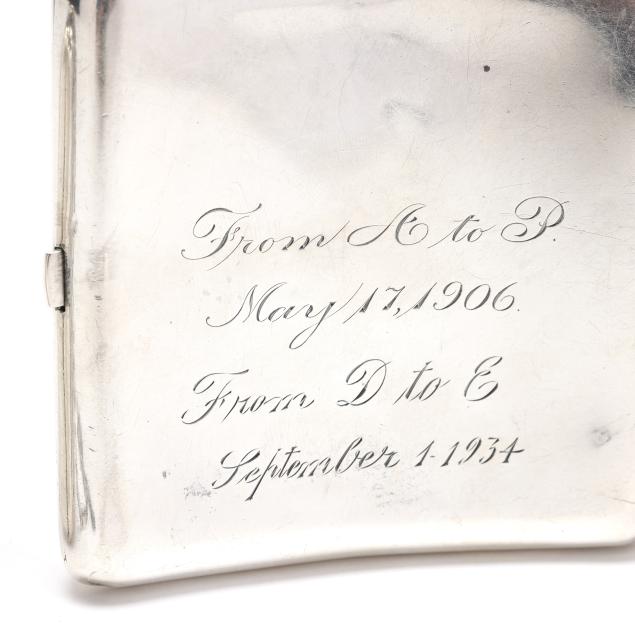 From A to P.
May 17, 1906.
From D to E
September 1-1934